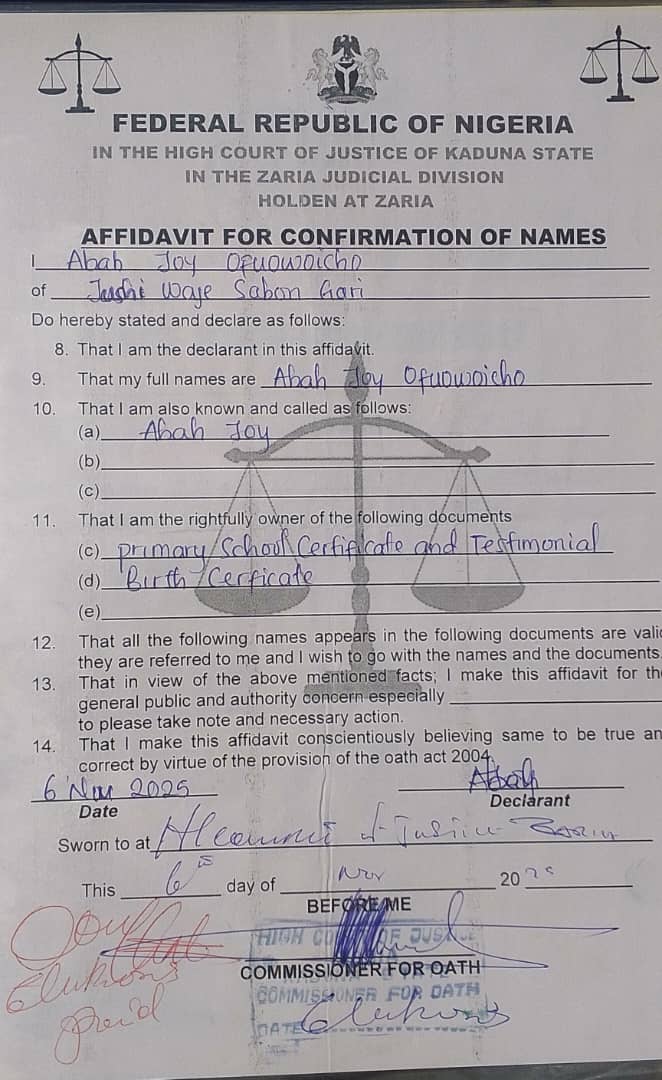 FEDERAL REPUBLIC OF NIGERIA
IN THE HIGH COURT OF JUSTICE OF KADUNA STATE
IN THE ZARIA JUDICIAL DIVISION
HOLDEN AT ZARIA
AFFIDAVIT FOR CONFIRMATION OF NAMES
I Abah Joy Ofuowoicho
of Jushi Waje Sabon Gari
Do hereby stated and declare as follows:
8. That I am the declarant in this affidavit.
9. That my full names are Abah Joy Ofuowoicho
10. That I am also known and called as follows:
(a) Abah Joy
(b)
(c)
11. That I am the rightfully owner of the following documents
(c) primary School Certificate and Testimonial
(d) Birth Cerficate
(e)
12. That all the following names appears in the following documents are valid
they are referred to me and I wish to go with the names and the documents.
13. That in view of the above mentioned facts; I make this affidavit for the
general public and authority concern especially
to please take note and necessary action.
14. That I make this affidavit conscientiously believing same to be true an
correct by virtue of the provision of the oath act 2004.
6 Nov 2025 Abah
Date Declarant
Sworn to at of Justice Zaria
This 6th day of Nov 2025
BEFORE ME
HIGH COURT OF JUSTICE
COMMISSIONER FOR OATH
COMMISSIONER FOR OATH
DATE